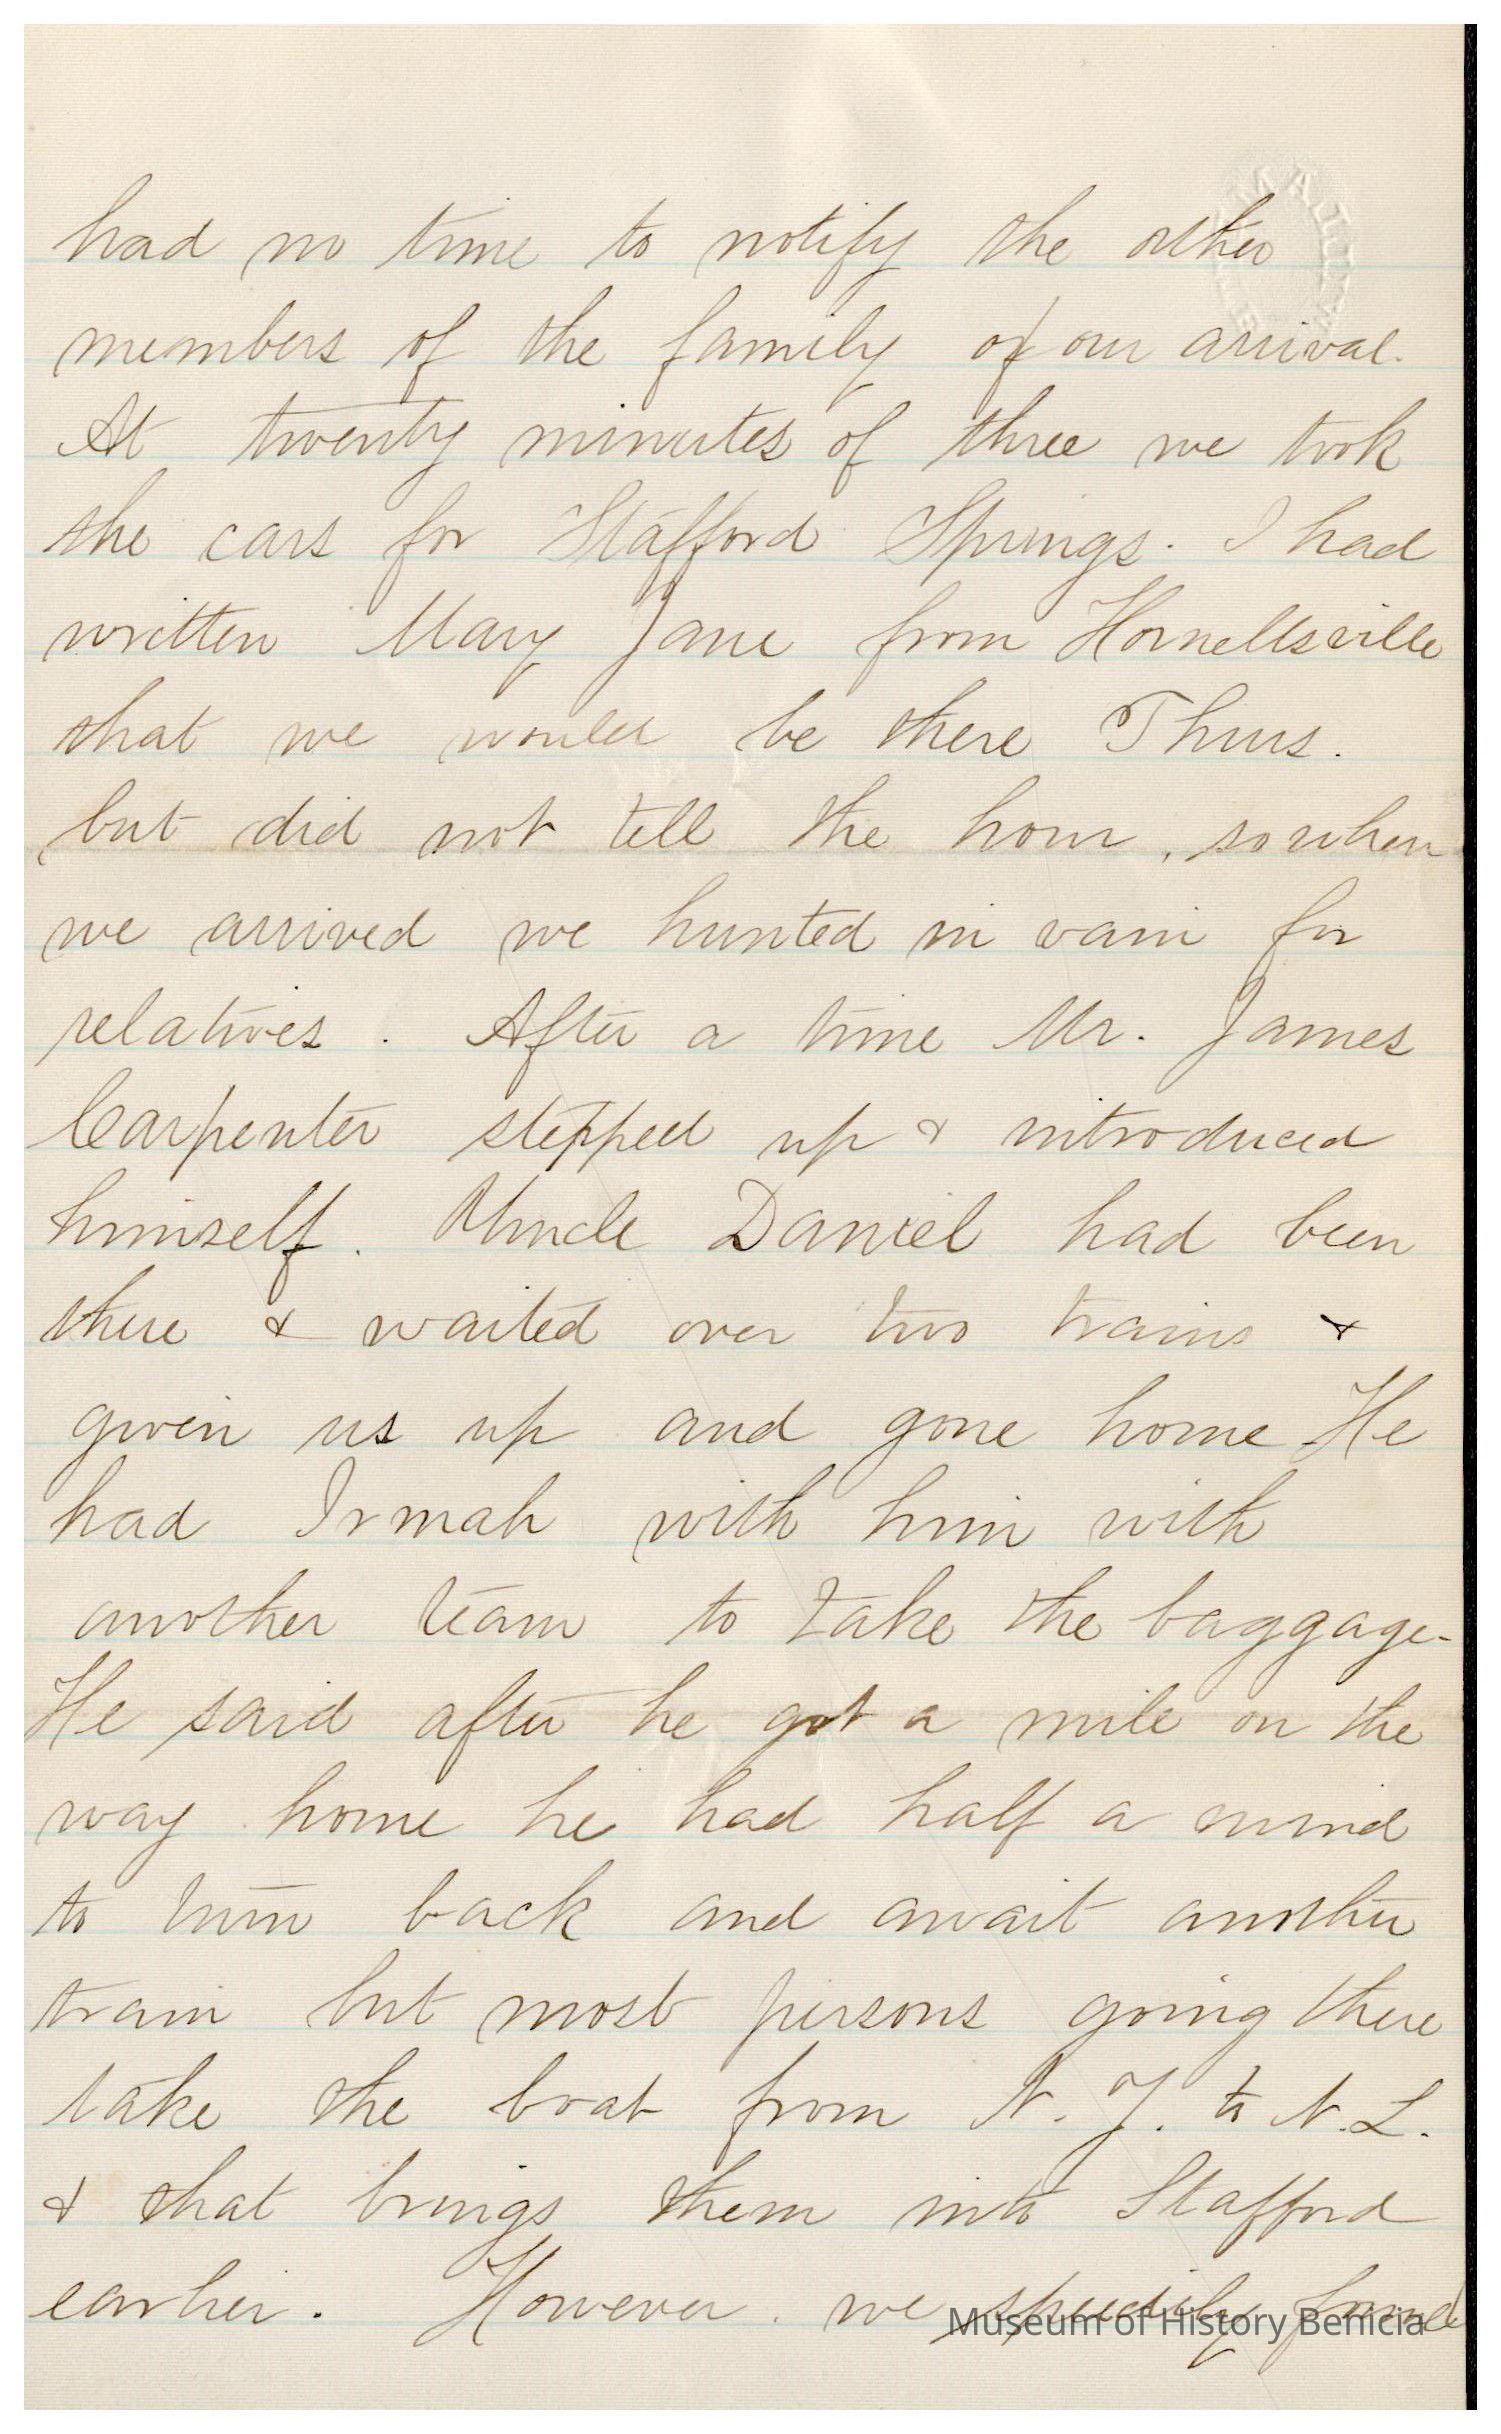 had no time to notify the other
members of the family of our arrival.
At twenty minutes of three we took
the cars for Stafford Springs. I had
written Mary Jane from Hornellsville
that we would be there Thurs.
but did not tell the hour, so when
we arrived we hunted in vain for
relatives. After a time Mr. James
Carpenter stepped up & introduced
himself. Uncle Daniel had been
there & waited over two trains &
given us up and gone home He
had Irmah with him with
another team to take the baggage.
He said after he got a mile on the
way home he had half a mind
to turn back and await another
train but most persons going there
take the boat from N. Y. to N. L.
& that brings them into Stafford
earlier. However we speedily found
Museum of History Benicia